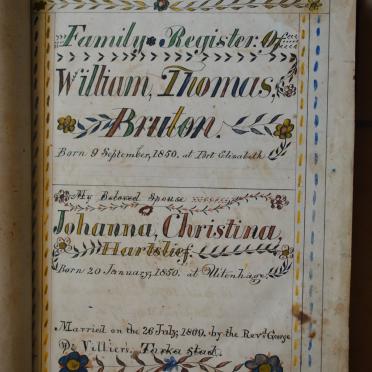 Family Register. Of
William, Thomas,
Bruton.
Born 9 September, 1850. at Port Elizabeth
My Beloved Spouse
Johanna, Christina,
Hartslief.
Born 20 January, 1850. at Uitenhage,
Married on the 26 July; 1869. by the Revd. George
De Villiers. Tarka stad.